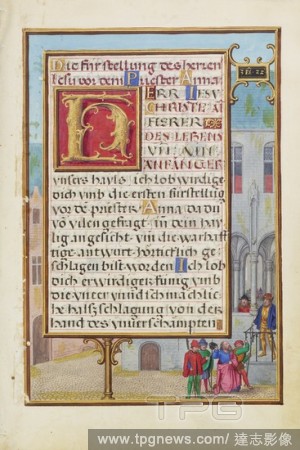 Die fürstellung des herren
Jesu vor dem Priester Anna
HERR IESV
CHRISTE A
FLERER
DES LEBENS
VN AIN
ANFANGER
vnsers hayls ich lob wirdige
dich vmb die ersten fürstellung
vor dē priester Anna da du
vō vilen gefragt in dem hay
lig angesicht vm die warhaff
tige antwort hörticklich ge
schlagen bist worden Ich lob
dich erwirdiger künig vmb
die vnter vnd
halsschlagung von der
hand des vnverschampten
TPG
www.tpgnews.com/ 達志影像